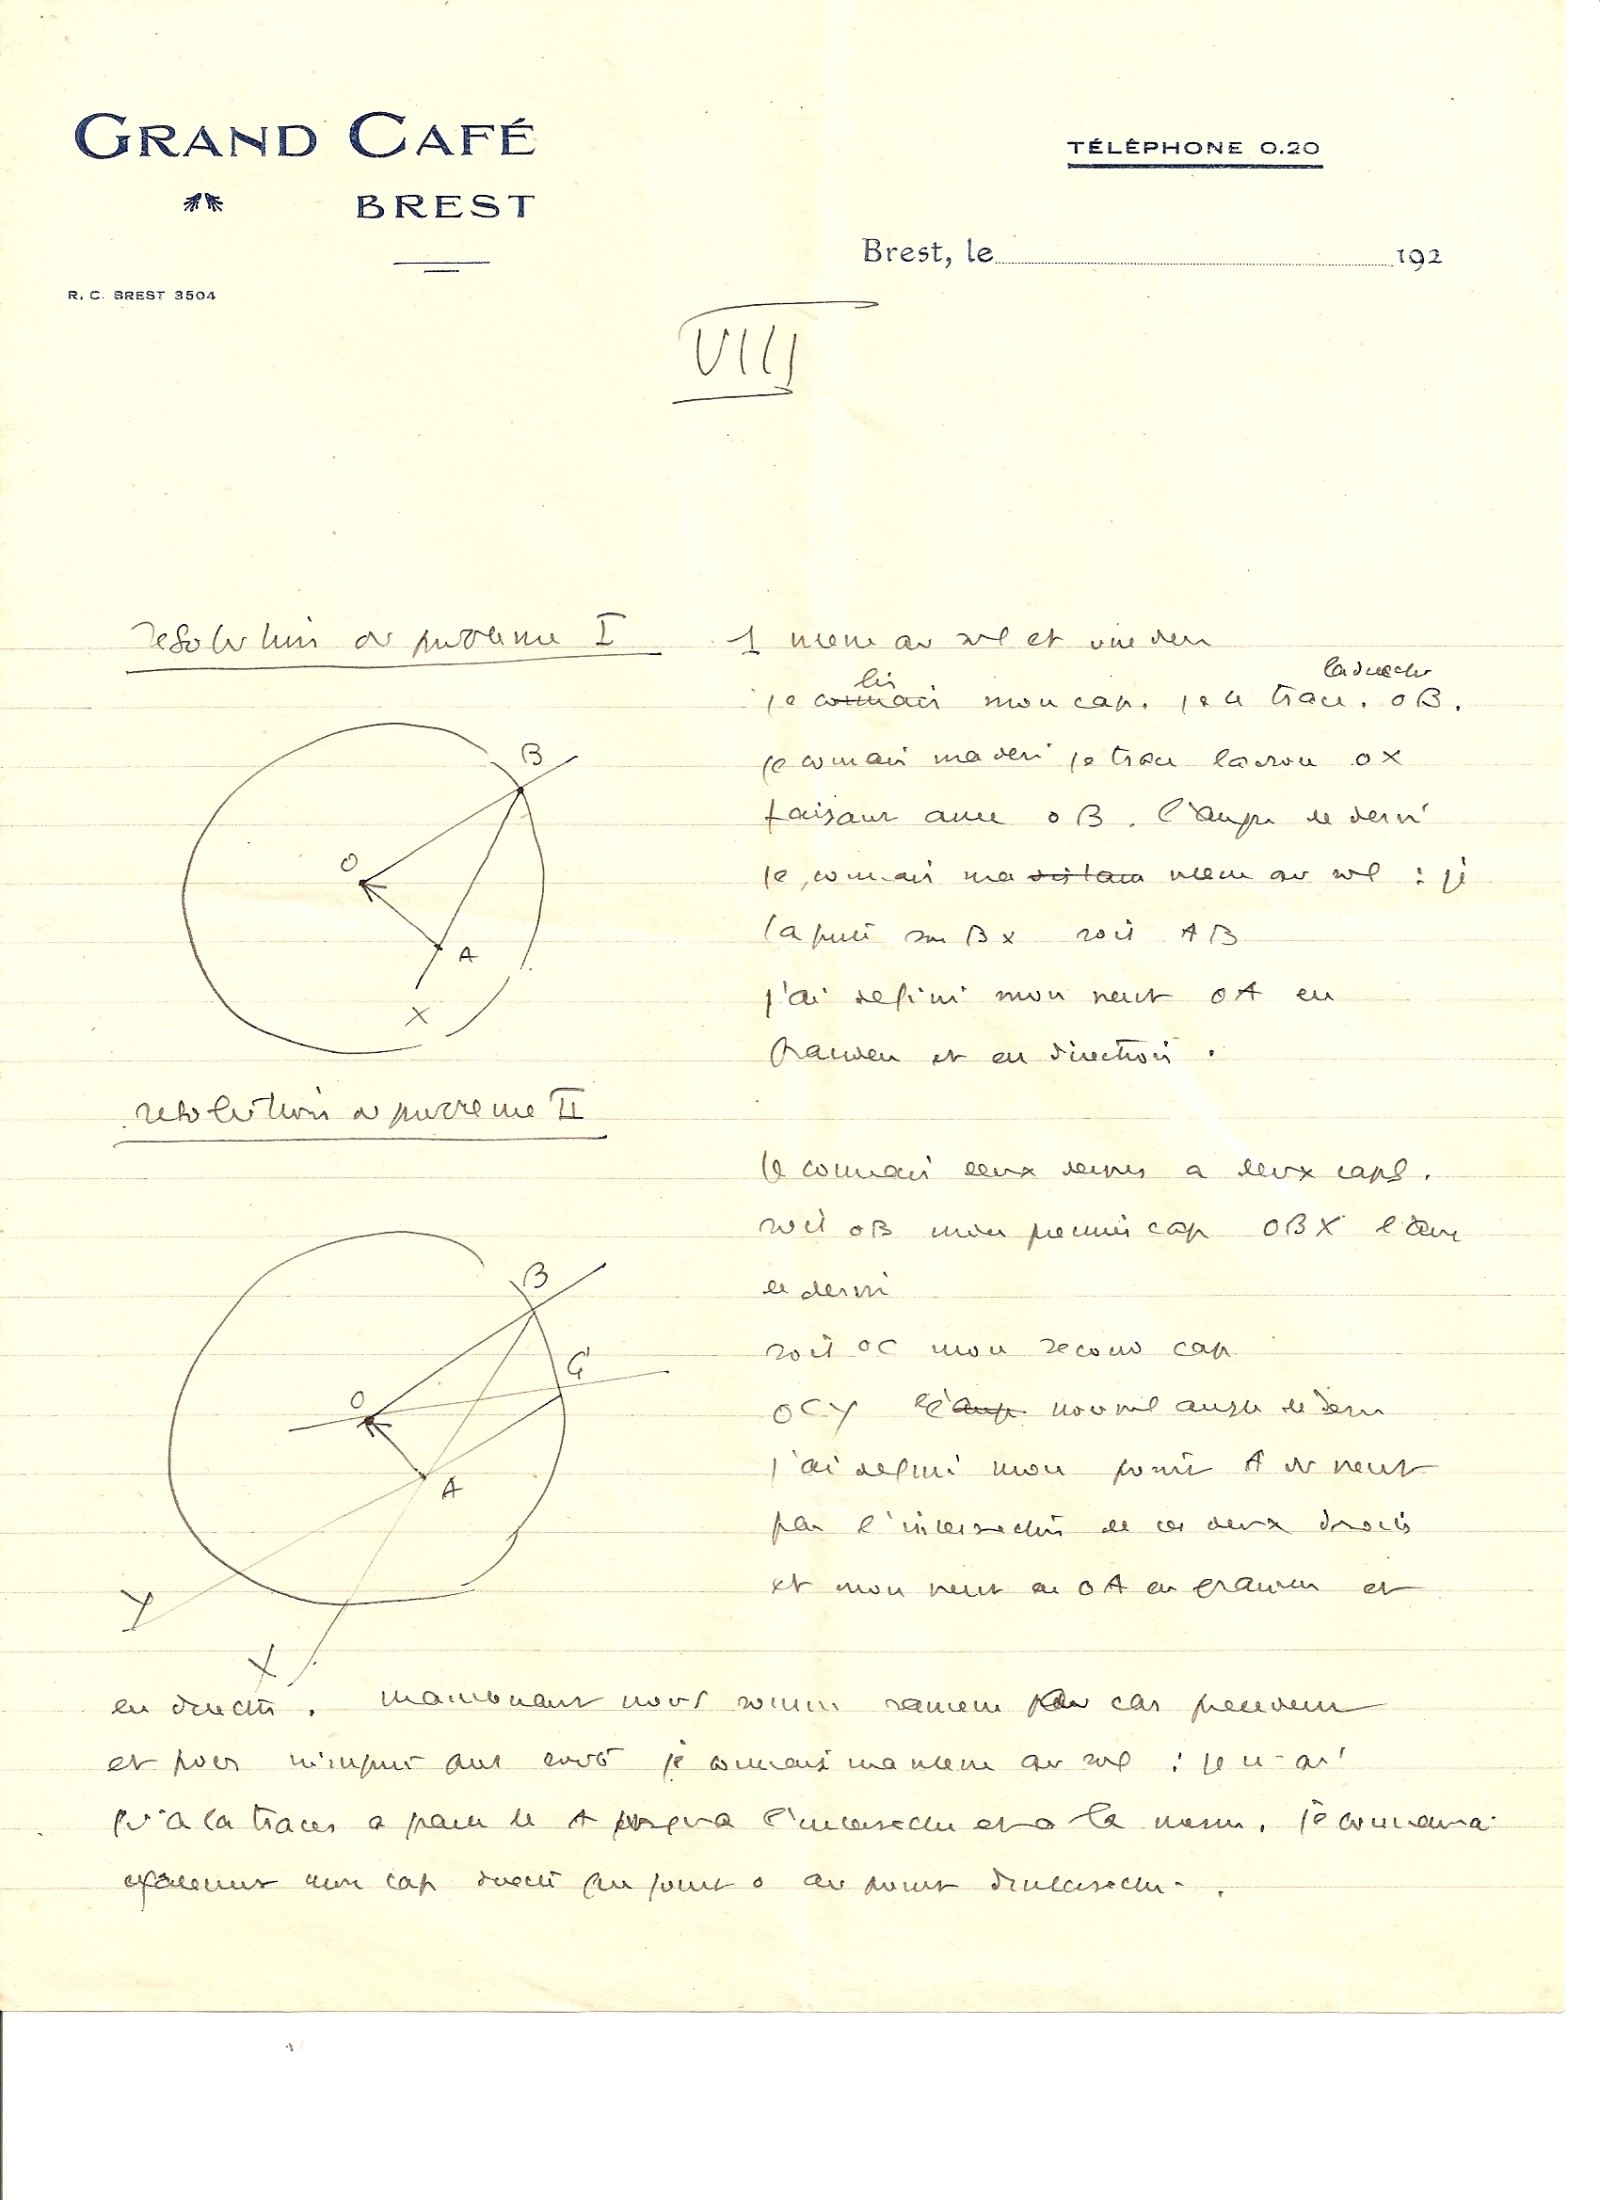 GRAND CAFÉ
BREST
TÉLÉPHONE 0.20
Brest, le 192
R. C. BREST 3504
VIII
resolution du probleme I
1 vitesse au sol et
lis la direction
je connais mon cap. je le trace. OB.
je connais ma je trace OX
faisant avec OB. l'angle de derive
je connais ma distance vitesse au sol : je
la porte sur BX soit AB
j'ai defini mon vent OA en
grandeur et en direction.
B
O
A
X
resolution du probleme II
je connais deux derives a deux caps.
soit OB mon premier cap OBX l'angle
de derive
soit OC mon second cap
OCY l'angle nouvel angle de derive
j'ai defini mon point A du vent
par l'intersection de ces deux droites
et mon vent en OA en grandeur et
B
C
O
A
Y
X
en direction. maintenant nous sommes ramenes cas precedent
et pour n'importe quel je connais ma vitesse au sol : je n'ai
qu'a la tracer a partir de A jusqu'a l'intersection et a la mesurer. je connaitrai
egalement mon cap du point O au point d'intersection.